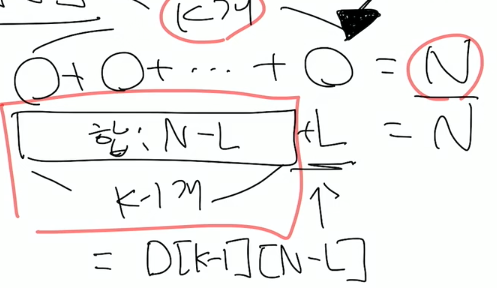 K개
O + O + ... + O = N
합: N-L + L = N
K-1개
= D[K-1][N-L]